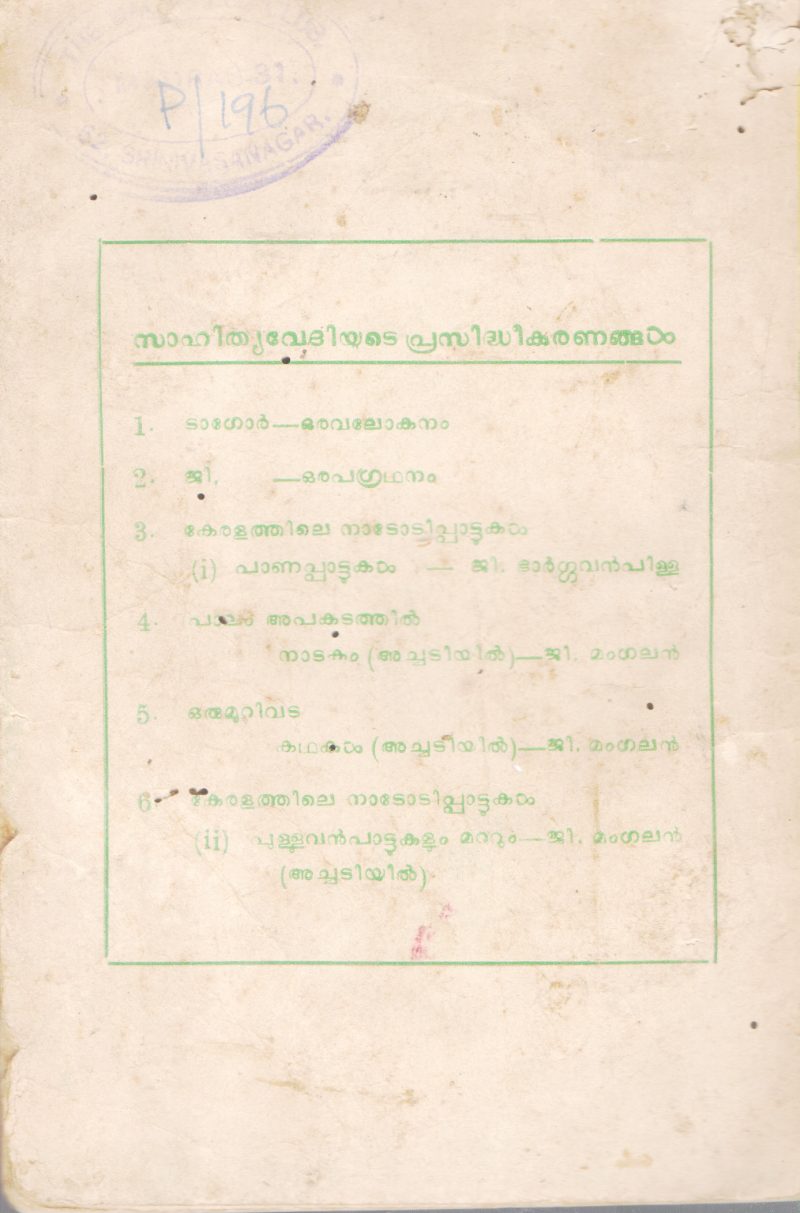 THE
31.
P/196
62, SRINIVASANAGAR.
സാഹിത്യവേദിയുടെ പ്രസിദ്ധീകരണങ്ങൾ
1. ടാഗോർ—ഒരവലോകനം
2. ജി. —ഒരപഗ്രഥനം
3. കേരളത്തിലെ നാടോടിപ്പാട്ടുകൾ
(i) പാണപ്പാട്ടുകൾ — ജി. ഭാർഗ്ഗവൻപിള്ള
4. പാലം അപകടത്തിൽ
നാടകം (അച്ചടിയിൽ)—ജി. മംഗലൻ
5. ഒരുമുറിവട
കഥകൾ (അച്ചടിയിൽ)—ജി. മംഗലൻ
6. കേരളത്തിലെ നാടോടിപ്പാട്ടുകൾ
(ii) പുള്ളുവൻപാട്ടുകളും മററും—ജി. മംഗലൻ
(അച്ചടിയിൽ)